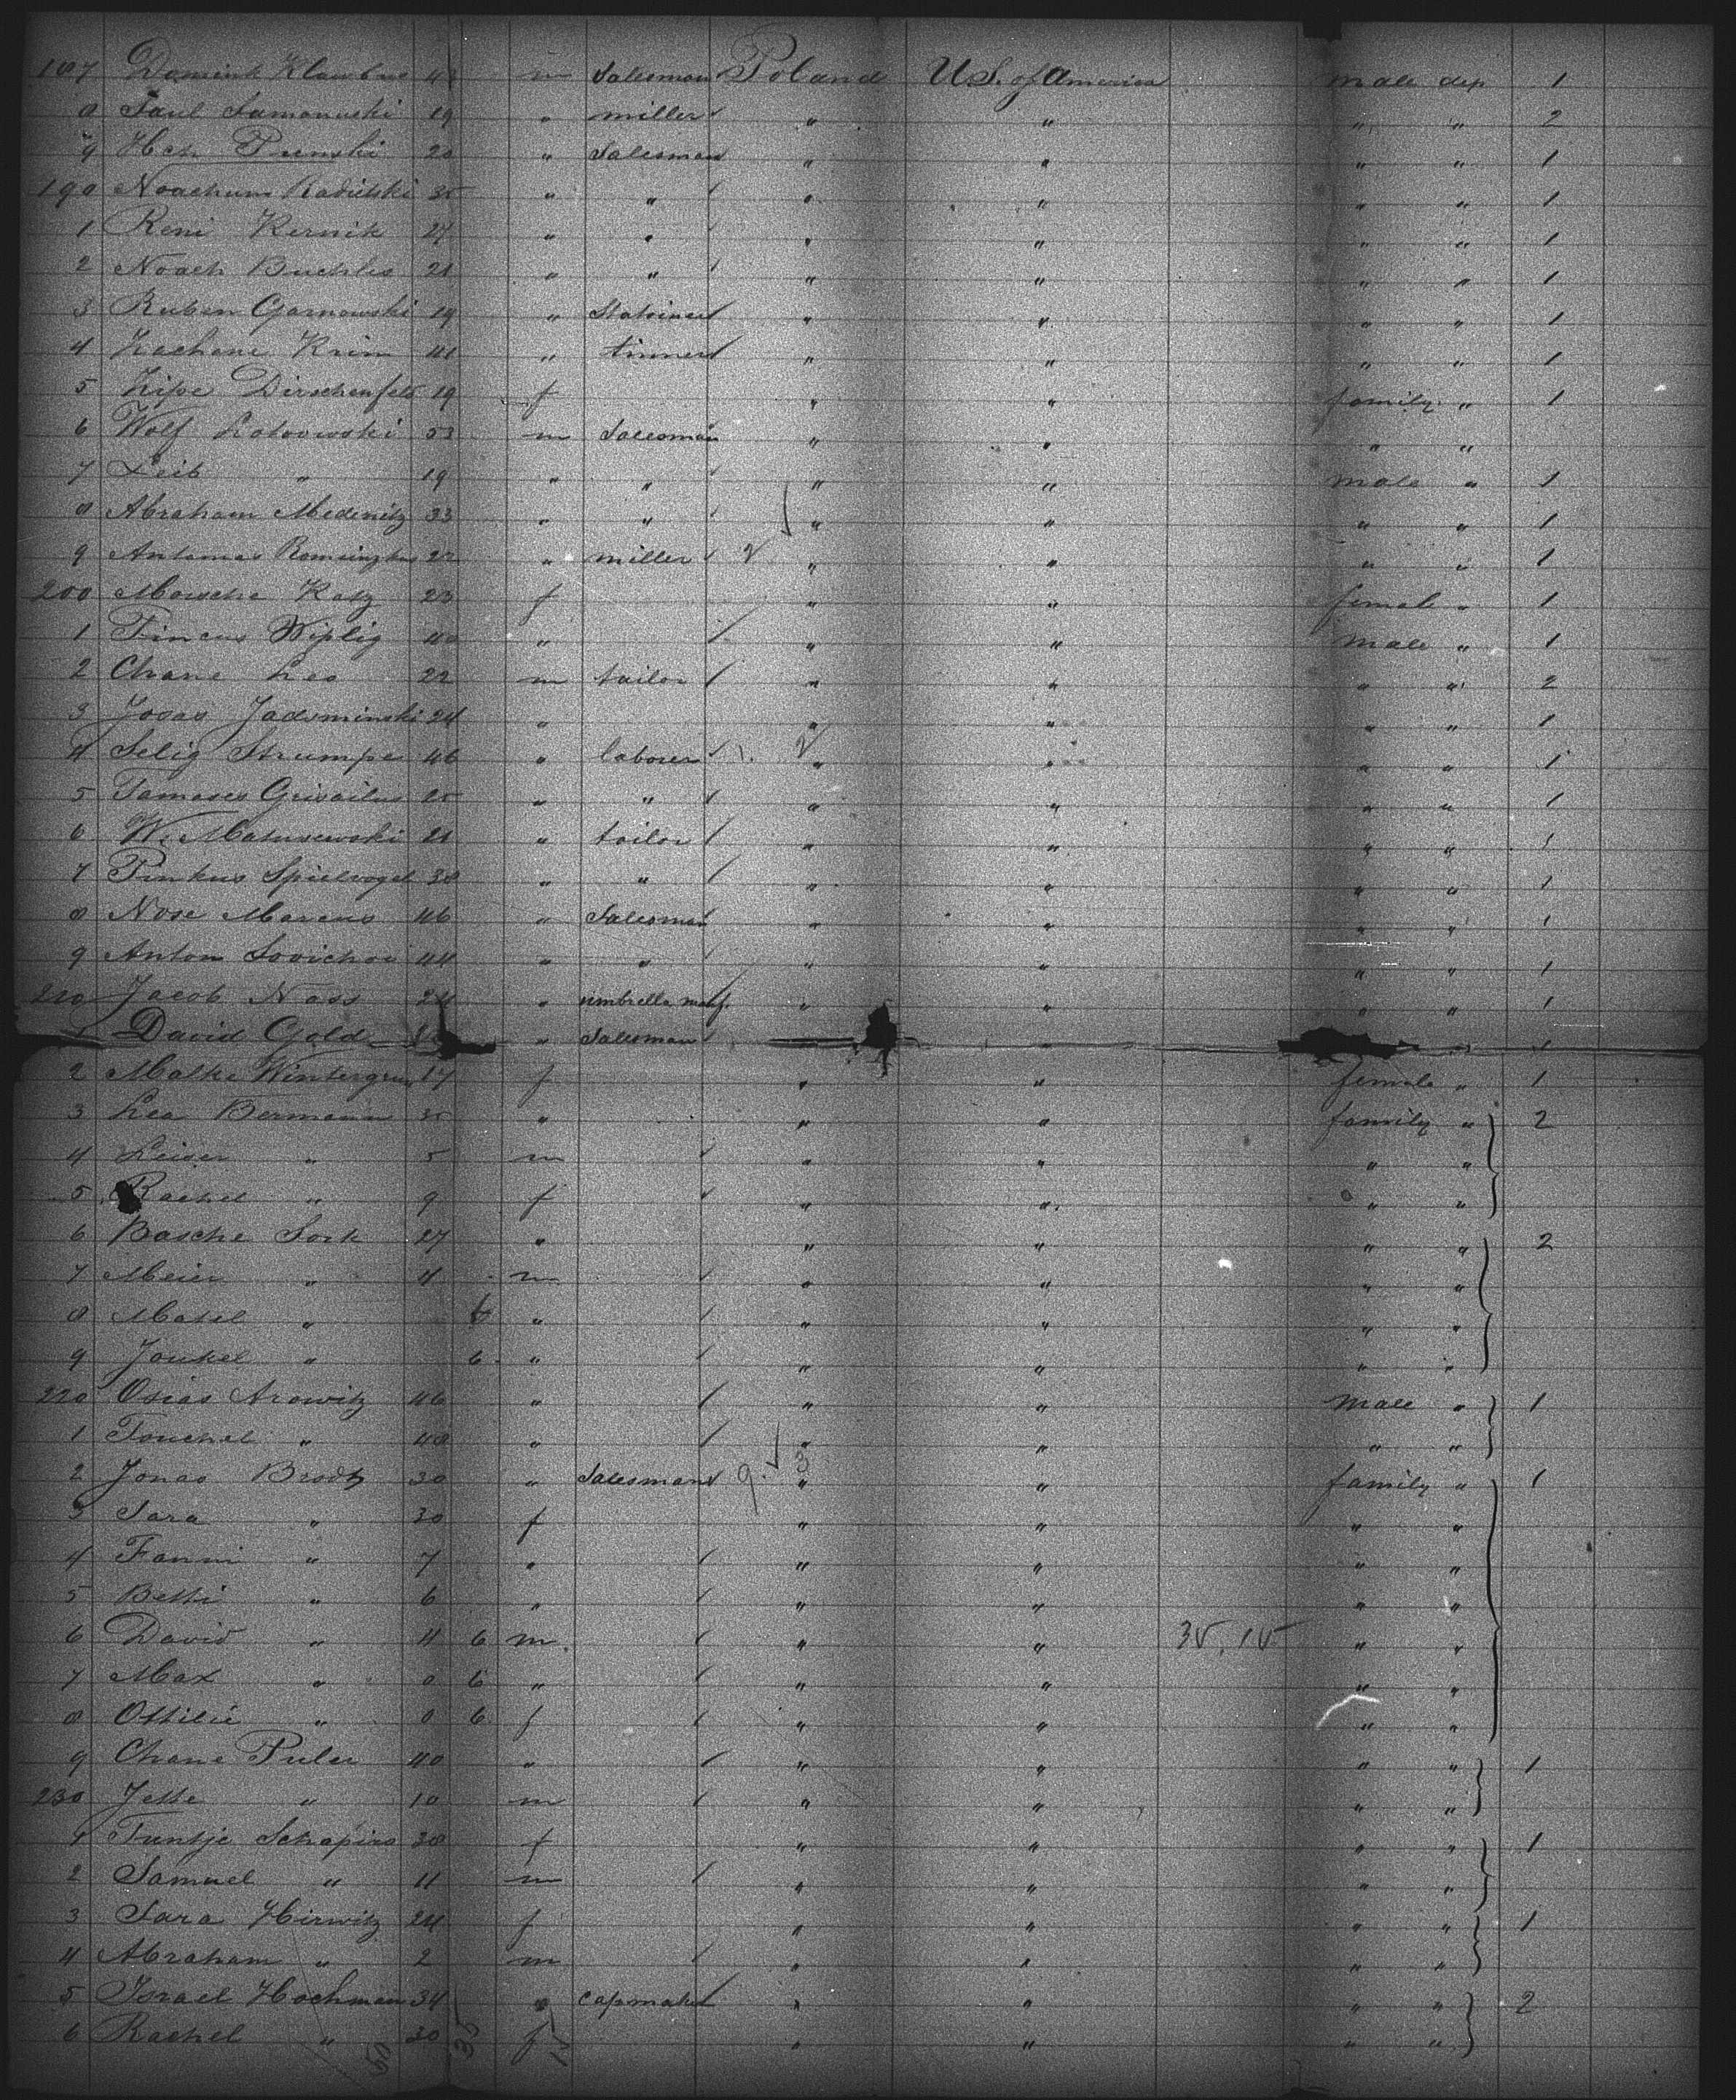 187 Dominik 4 m Salesman Poland U.S. of America male dep. 1
8 Saul Samonuski 19 " miller " " " " 2
9 Punski 20 " Salesman " " " " 1
190 Noachum 35 " " " " " " 1
1 Reni Kernik 27 " " " " " " 1
2 Noach 21 " " " " " " 1
3 Ruben Garnowski 19 " " " " " 1
4 Krim 41 " tinner " " " " 1
5 Zipe Dirschenfeld 19 f " " family " 1
6 Wolf 53 m Salesman " " " "
7 Leib " 19 " " " " male " 1
8 Abraham Medenitz 33 " " " " " " 1
9 Antonas 22 " miller " " " " 1
200 Mowsche Katz 23 f " " female " 1
1 Pincus Wiplig 40 " " " male " 1
2 Chane Leo 22 m tailor " " " " 2
3 Josas Jadsminski 24 " " " " " 1
4 Selig Strumpe 46 " laborer " " " " 1
5 Tamases Grisailus 25 " " " " " " 1
6 W. Matusewski 21 " tailor " " " " 1
7 Pinkus Spielvogel 38 " " " " " " 1
8 Nose Marcus 46 " Salesman " " " " 1
9 Anton 44 " " " " " " 1
210 Jacob Nass 24 " umbrella manf. " " " " 1
David Gold " Salesman " " 1
2 Malke Wintergrun 17 f " " female " 1
3 Lea Bermann 35 " " " family " 2
4 Leiser " 5 m " " " "
5 Rachel " 9 f " " " "
6 Basche Sork 27 " " " " " 2
7 Meier " 4 m " " " "
8 " 6 " " " " "
9 Jankel " 6 " " " " "
220 Osias Arowitz 46 " " " male " 1
1 " 48 " " " " "
2 Jonas Brodt 30 " Salesman " " family " 1
3 Sara " 30 f " " " "
4 Fanni " 7 " " " " "
5 Betti " 6 " " " " "
6 David " 4 6 m " " " "
7 Max " 0 6 " " " " "
8 Ottilie " 0 6 f " " " "
9 Chane Puler 40 " " " " " 1
230 Jette " 10 m " " " "
1 Tuntje Schapiro 38 f " " " " 1
2 Samuel " 11 m " " " "
3 Sara Hirwitz 24 f " " " " 1
4 Abraham " 2 m " " " "
5 Israel Hochman 34 " capmaker " " " " 2
6 Rachel " 30 f " " " "